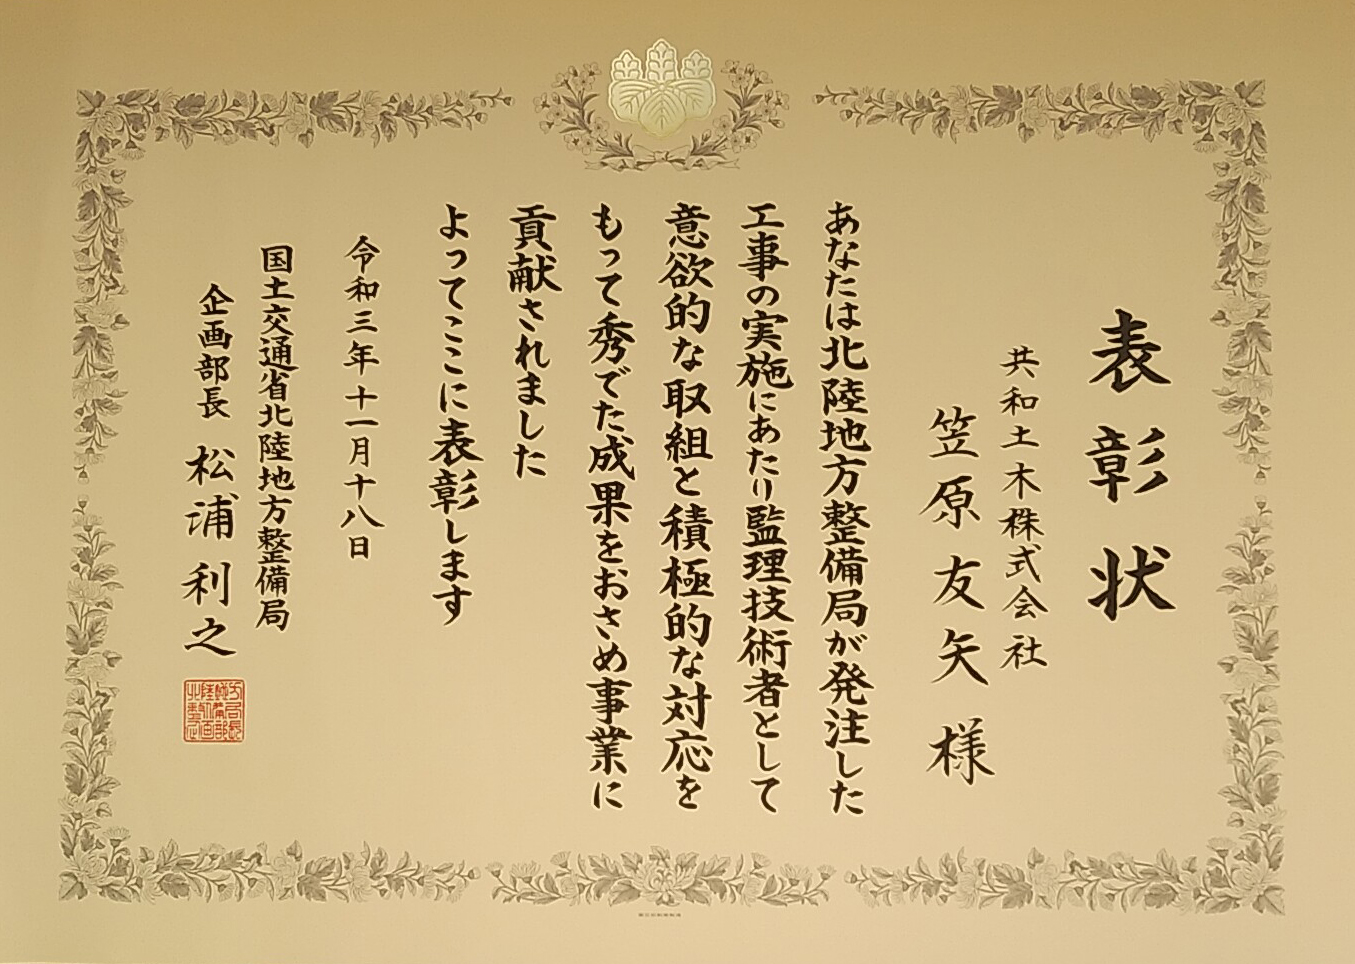 表彰状
共和土木株式会社
笠原友矢様
あなたは北陸地方整備局が発注した
工事の実施にあたり監理技術者として
意欲的な取組と積極的な対応を
もって秀でた成果をおさめ事業に
貢献されました
よってここに表彰します
令和三年十一月十八日
国土交通省北陸地方整備局
企画部長 松浦利之